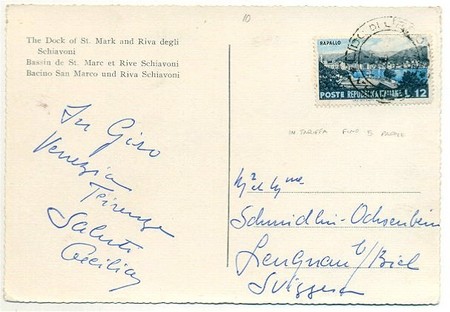 10
The Dock of St. Mark and Riva degli
Schiavoni
Bassin de St. Marc et Rive Schiavoni
Bacino San Marco und Riva Schiavoni
In Giro
Venezia
Firenze
Saluti
Cecilia
RAPALLO
POSTE REPUBBLICA ITALIANA L. 12
LIDO DI
IN TARIFFA FINO 5 PAROLE
Schmidlin-Ochsenbein
Lengnau b/Biel
Svizzera